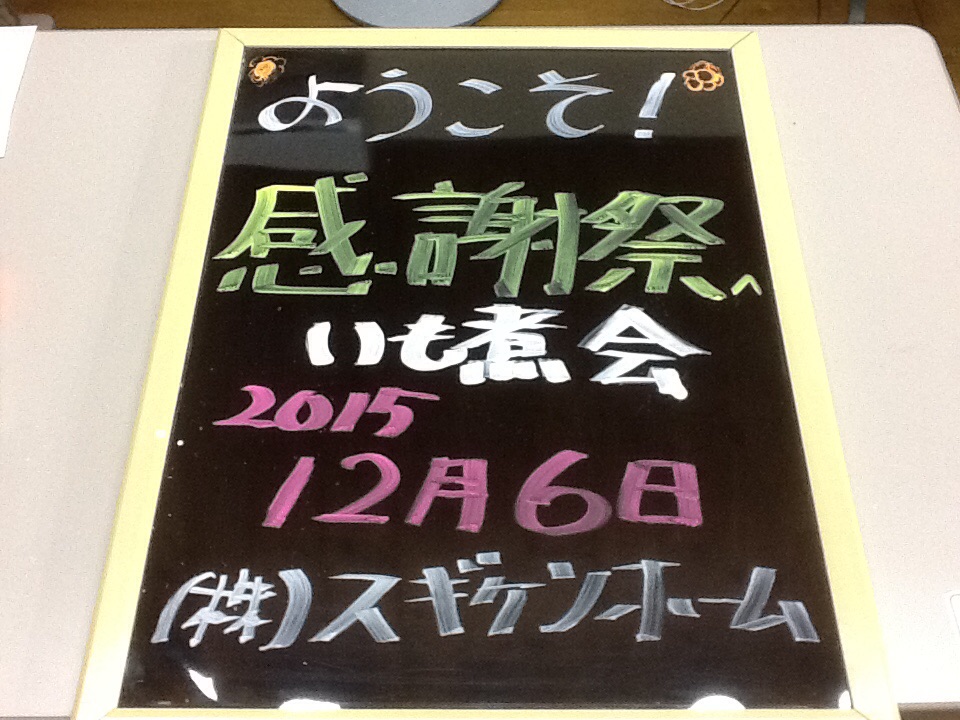 ようこそ!
感謝祭へ
いも煮会
2015
12月6日
(株)スギケンホーム